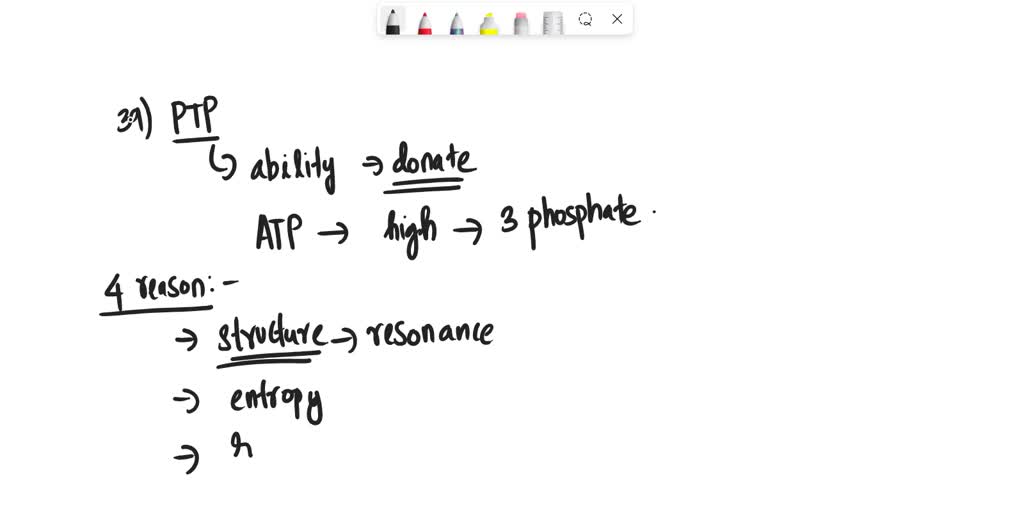 39) PTP
↳ ability → donate
ATP → high → 3 phosphate.
4 reason:-
→ structure → resonance
→ entropy
→